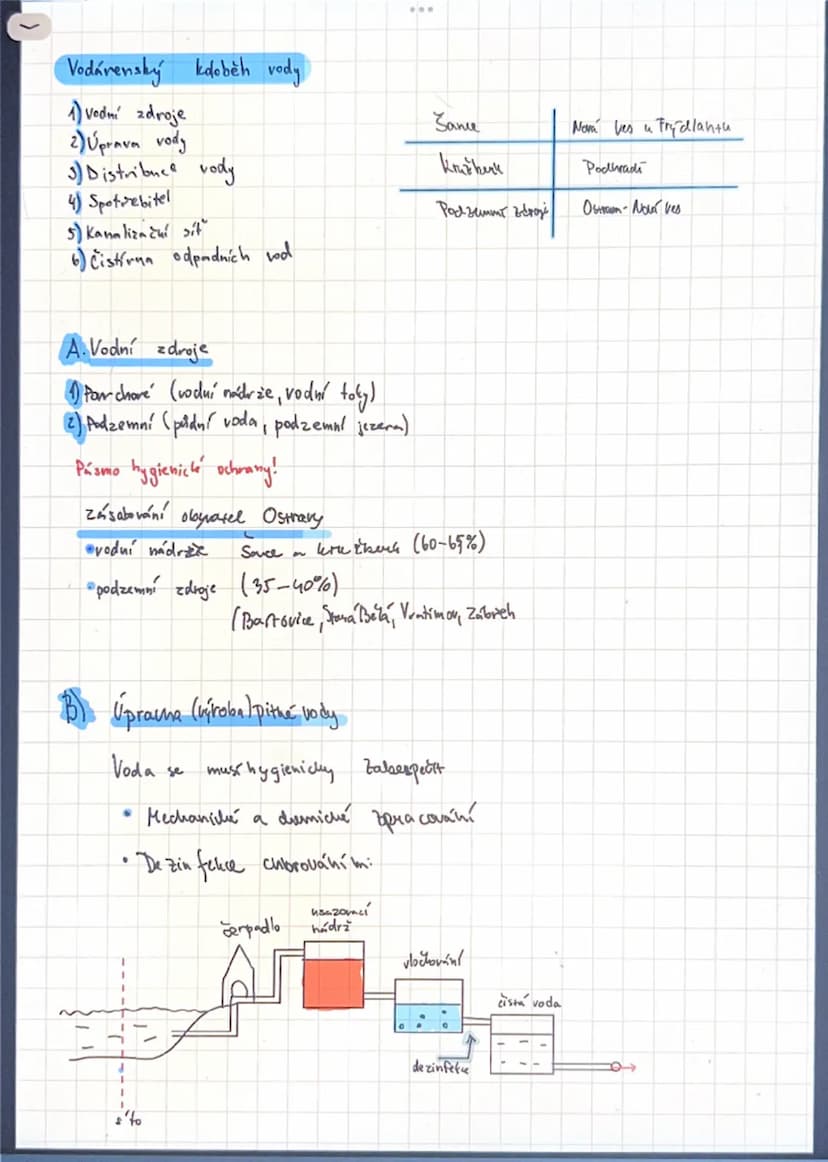 Vodárenský koloběh vody
1) Vodní zdroje
2) Úprava vody
3) Distribuce vody
4) Spotřebitel
5) Kanalizační síť
6) Čistírna odpadních vod
Šance Nová Ves u Frýdlantu
Kružberk Podhradí
Podzemní zdroji Ostrava-Nová Ves
A. Vodní zdroje
1) Povrchové (vodní nádrže, vodní toky)
2) Podzemní (půdní voda, podzemní jezera)
Pásmo hygienické ochrany!
Zásobování obyvatel Ostravy
• vodní nádrže Šance a Kružberk (60-65%)
• podzemní zdroje (35-40%)
(Bartovice, Stará Bělá, Vratimov, Zábřeh
B) Úpravna (výroba) pitné vody
Voda se musí hygienicky zabezpečit
• Mechanické a chemické zpracování
• Dezinfekce chlorováním:
čerpadlo
usazovací
nádrž
vločkování
čistá voda
dezinfekce
síto